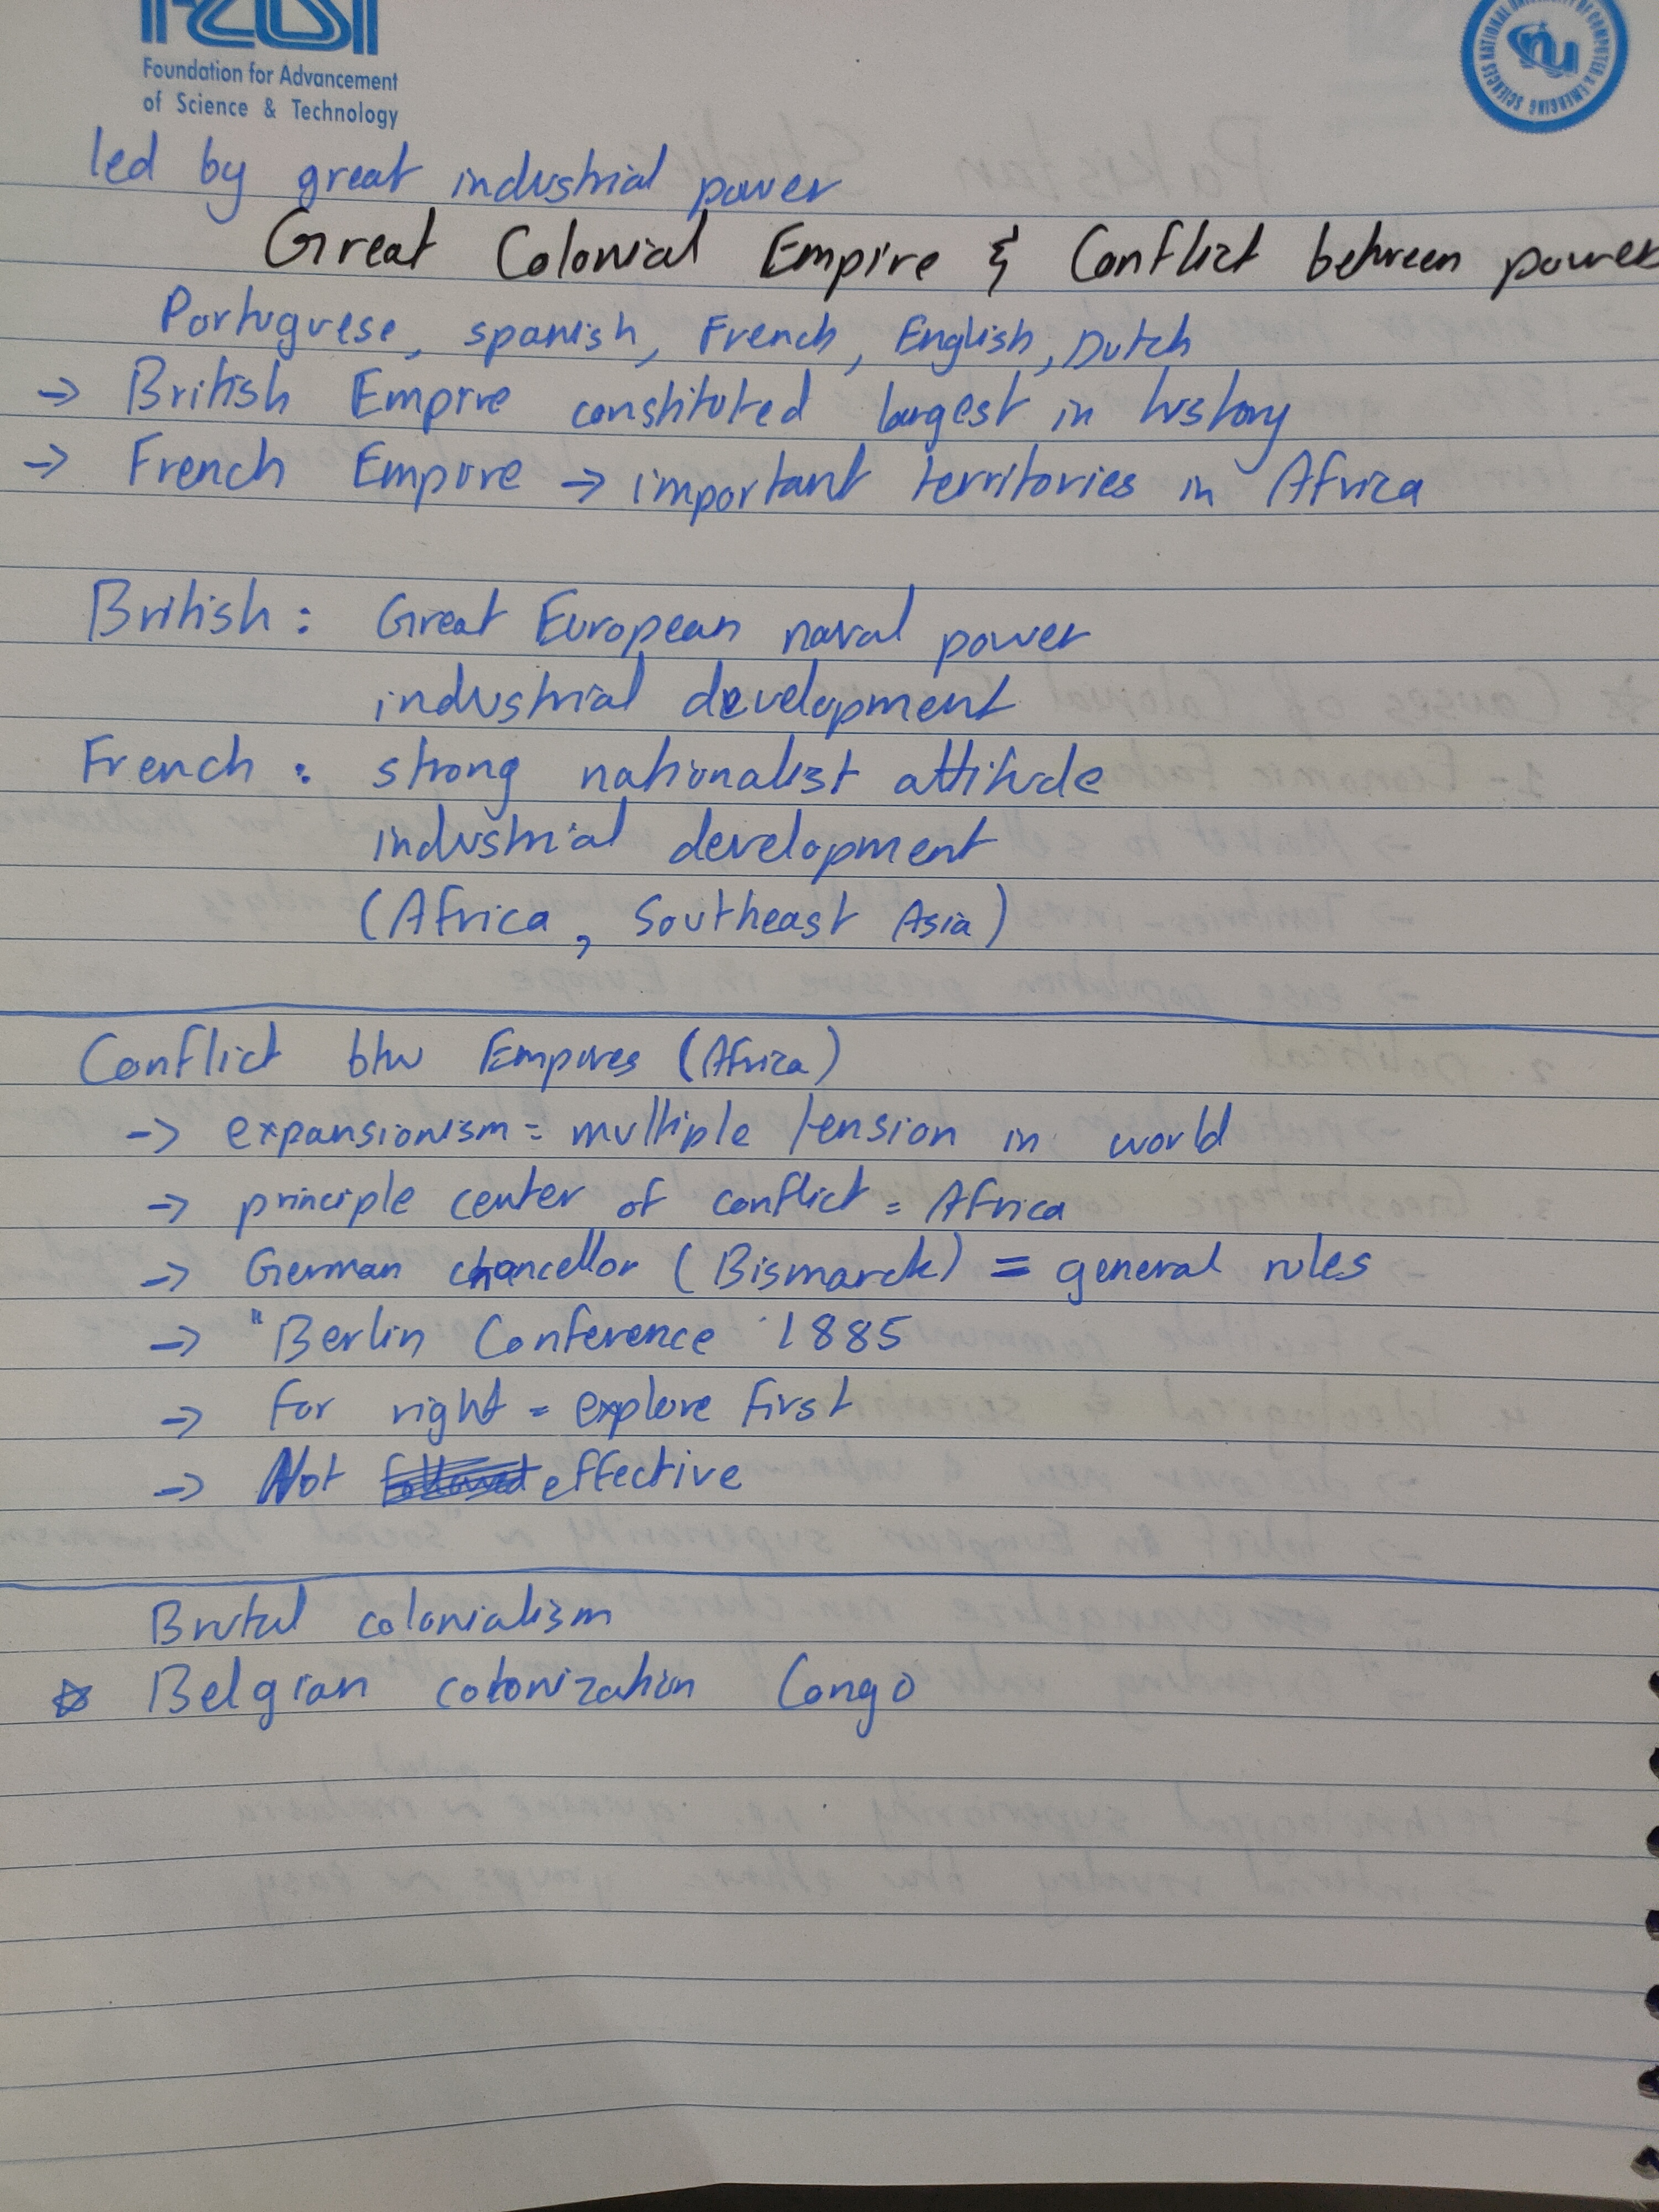 Foundation for Advancement
of Science & Technology
NATIONAL UNIVERSITY OF COMPUTER & EMERGING SCIENCES
nu
led by great industrial power
Great Colonial Empire & Conflict between power
Portuguese, spanish, French, English, Dutch
→ British Empire constituted largest in history
→ French Empire → important territories in Africa
British : Great European naval power
industrial development
French : strong nationalist attitude
industrial development
(Africa, Southeast Asia)
Conflict btw Empires (Africa)
→ expansionism = multiple tension in world
→ principle center of conflict = Africa
→ German chancellor (Bismarck) = general rules
→ "Berlin Conference 1885
→ for right = explore first
→ Not effective
Brutal colonialism
☆ Belgian colonization Congo